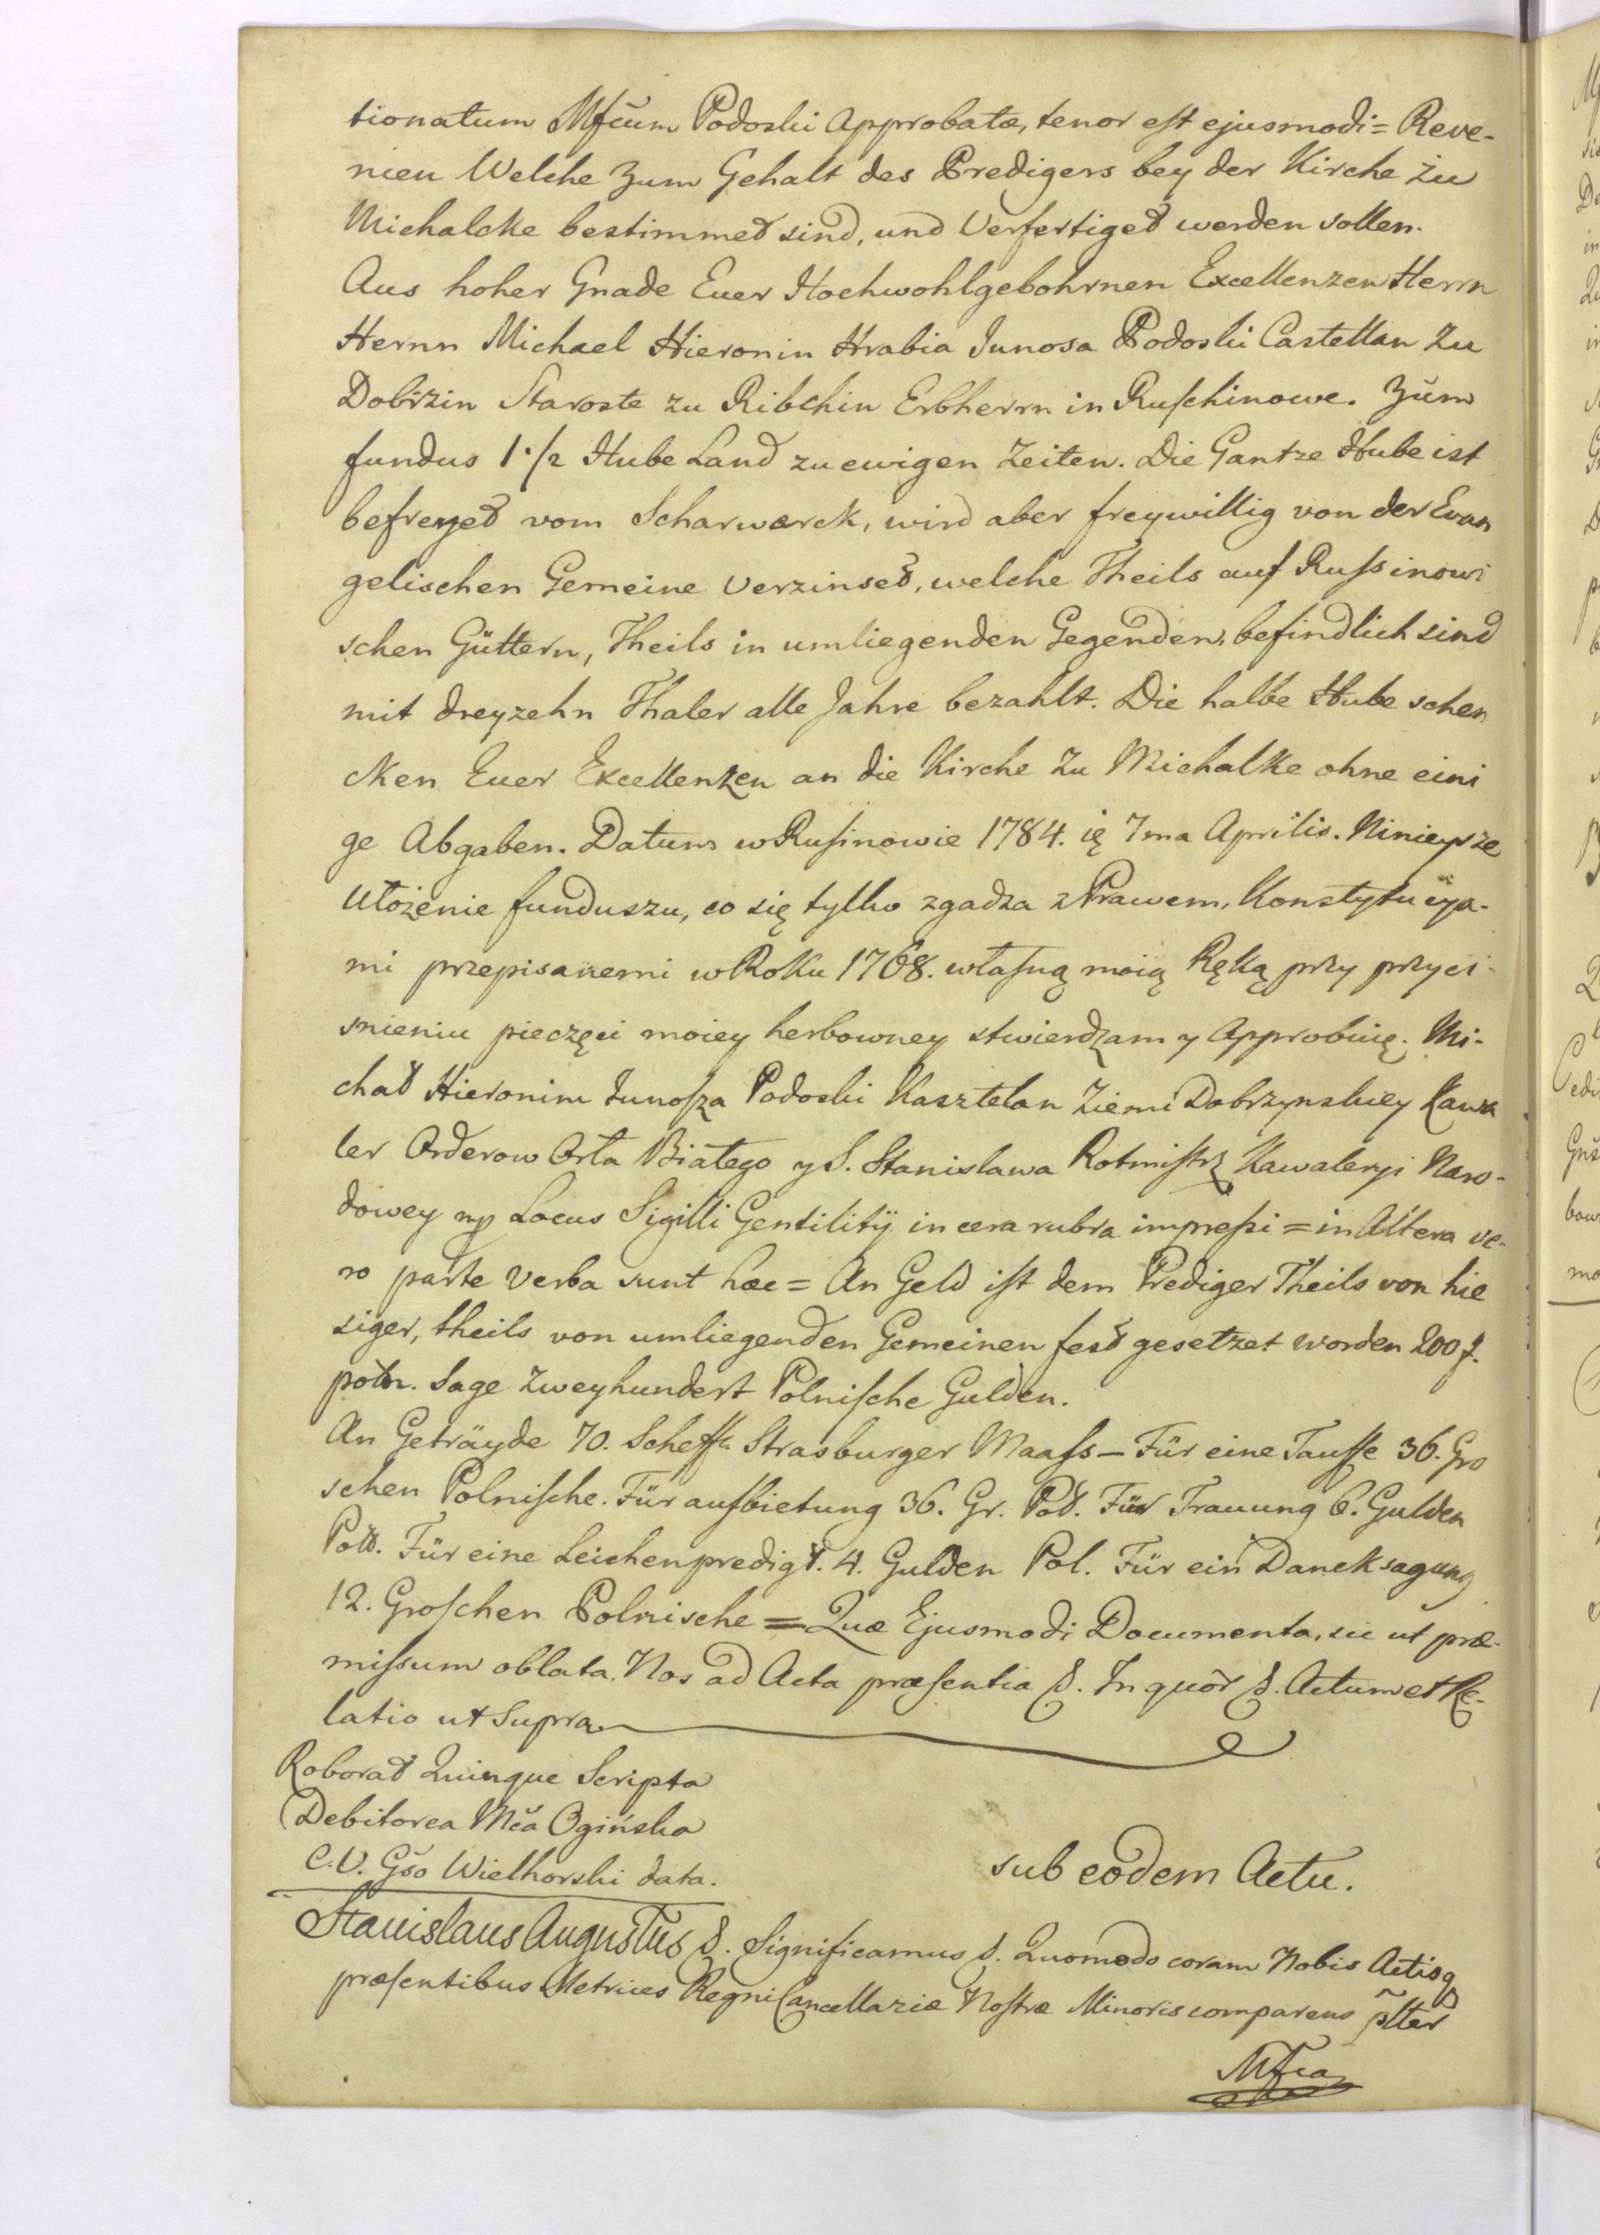 tionatum Mfcum Podoski Approbatæ, tenor est ejusmodi = Reve-
nien Welche Zum Gehalt des Predigers bey der Kirche zu
Michalcke bestimmet sind, und Verfertiget werden sollen.
Aus hoher Gnade Euer Hochwohlgebohrnen Excellenzen Herrn
Hernn Michael Hieronin Hrabia Junosa Podoski Castellan Zu
Dobrzin Staroste zu Ribchin Erbherrn in Ruschinowe. Zum
fundus 1 1/2 Hube Land zu ewigen Zeiten. Die Gantze Hube ist
befreyet vom Scharwærck, wird aber freywillig von der Evan
gelischen Gemeine Verzinset, welche Theils auf Russinowi
schen Güttern, Theils in umliegenden Gegenden, befindlich sind
mit dreyzehn Thaler alle Jahre bezahlt. Die halbe Hube schen
cken Euer Excellenzen an die Kirche Zu Michalke ohne eini
ge Abgaben. Datum w Rusinowie 1784. ię 7ma Aprilis. Ninieysze
Ułożenie funduszu, co się tylko zgadza z Prawem, Konstytucya-
mi przepisanemi w Roku 1768. własną moią Ręką przy przyci-
snieniu pieczęci moiey herbowney stwierdzam y Approbuię. Mi-
chał Hieronim Junosza Podoski Kasztelan Ziemi Dobrzynskiey Kawa
ler Orderow Orła Białego y S. Stanislawa Rotmistrz Kawaleryi Naro-
dowey mp Locus Sigilli Gentilitÿ in cera rubra impressi = in Altera ve-
ro parte Verba sunt hæc = An Geld ist dem Prediger Theils von hie
siger, theils von umliegenden Gemeinen fest gesetzet worden 200 f.
poln. Sage Zweyhundert Polnische Gulden.
An Geträyde 70. Scheffl. Strasburger Maass – Für eine Tauffe 36. Gro
schen Polnische. Für aufbietung 36. Gr. Pol. Für Trauung 6. Gulden
Poll. Für eine Leichenpredigt. 4. Gulden Pol. Für ein Dancksagung
12. Groschen Polnische = Quæ Ejusmodi Documenta, sic ut præ-
missum oblata, Nos ad Acta præsentia &. In quor &. Actum et Re-
latio ut Supra
Roborat Quinque Scripta
Debitorea Mča Ogińska
C. V. Gso Wielhorski data.
sub eodem Actu.
Stanislaus Augustus &. Significamus &. Quomodo coram Nobis Actisq
præsentibus Metrices Regni Cancellariæ Nostræ Minoris comparens plter
Mfca